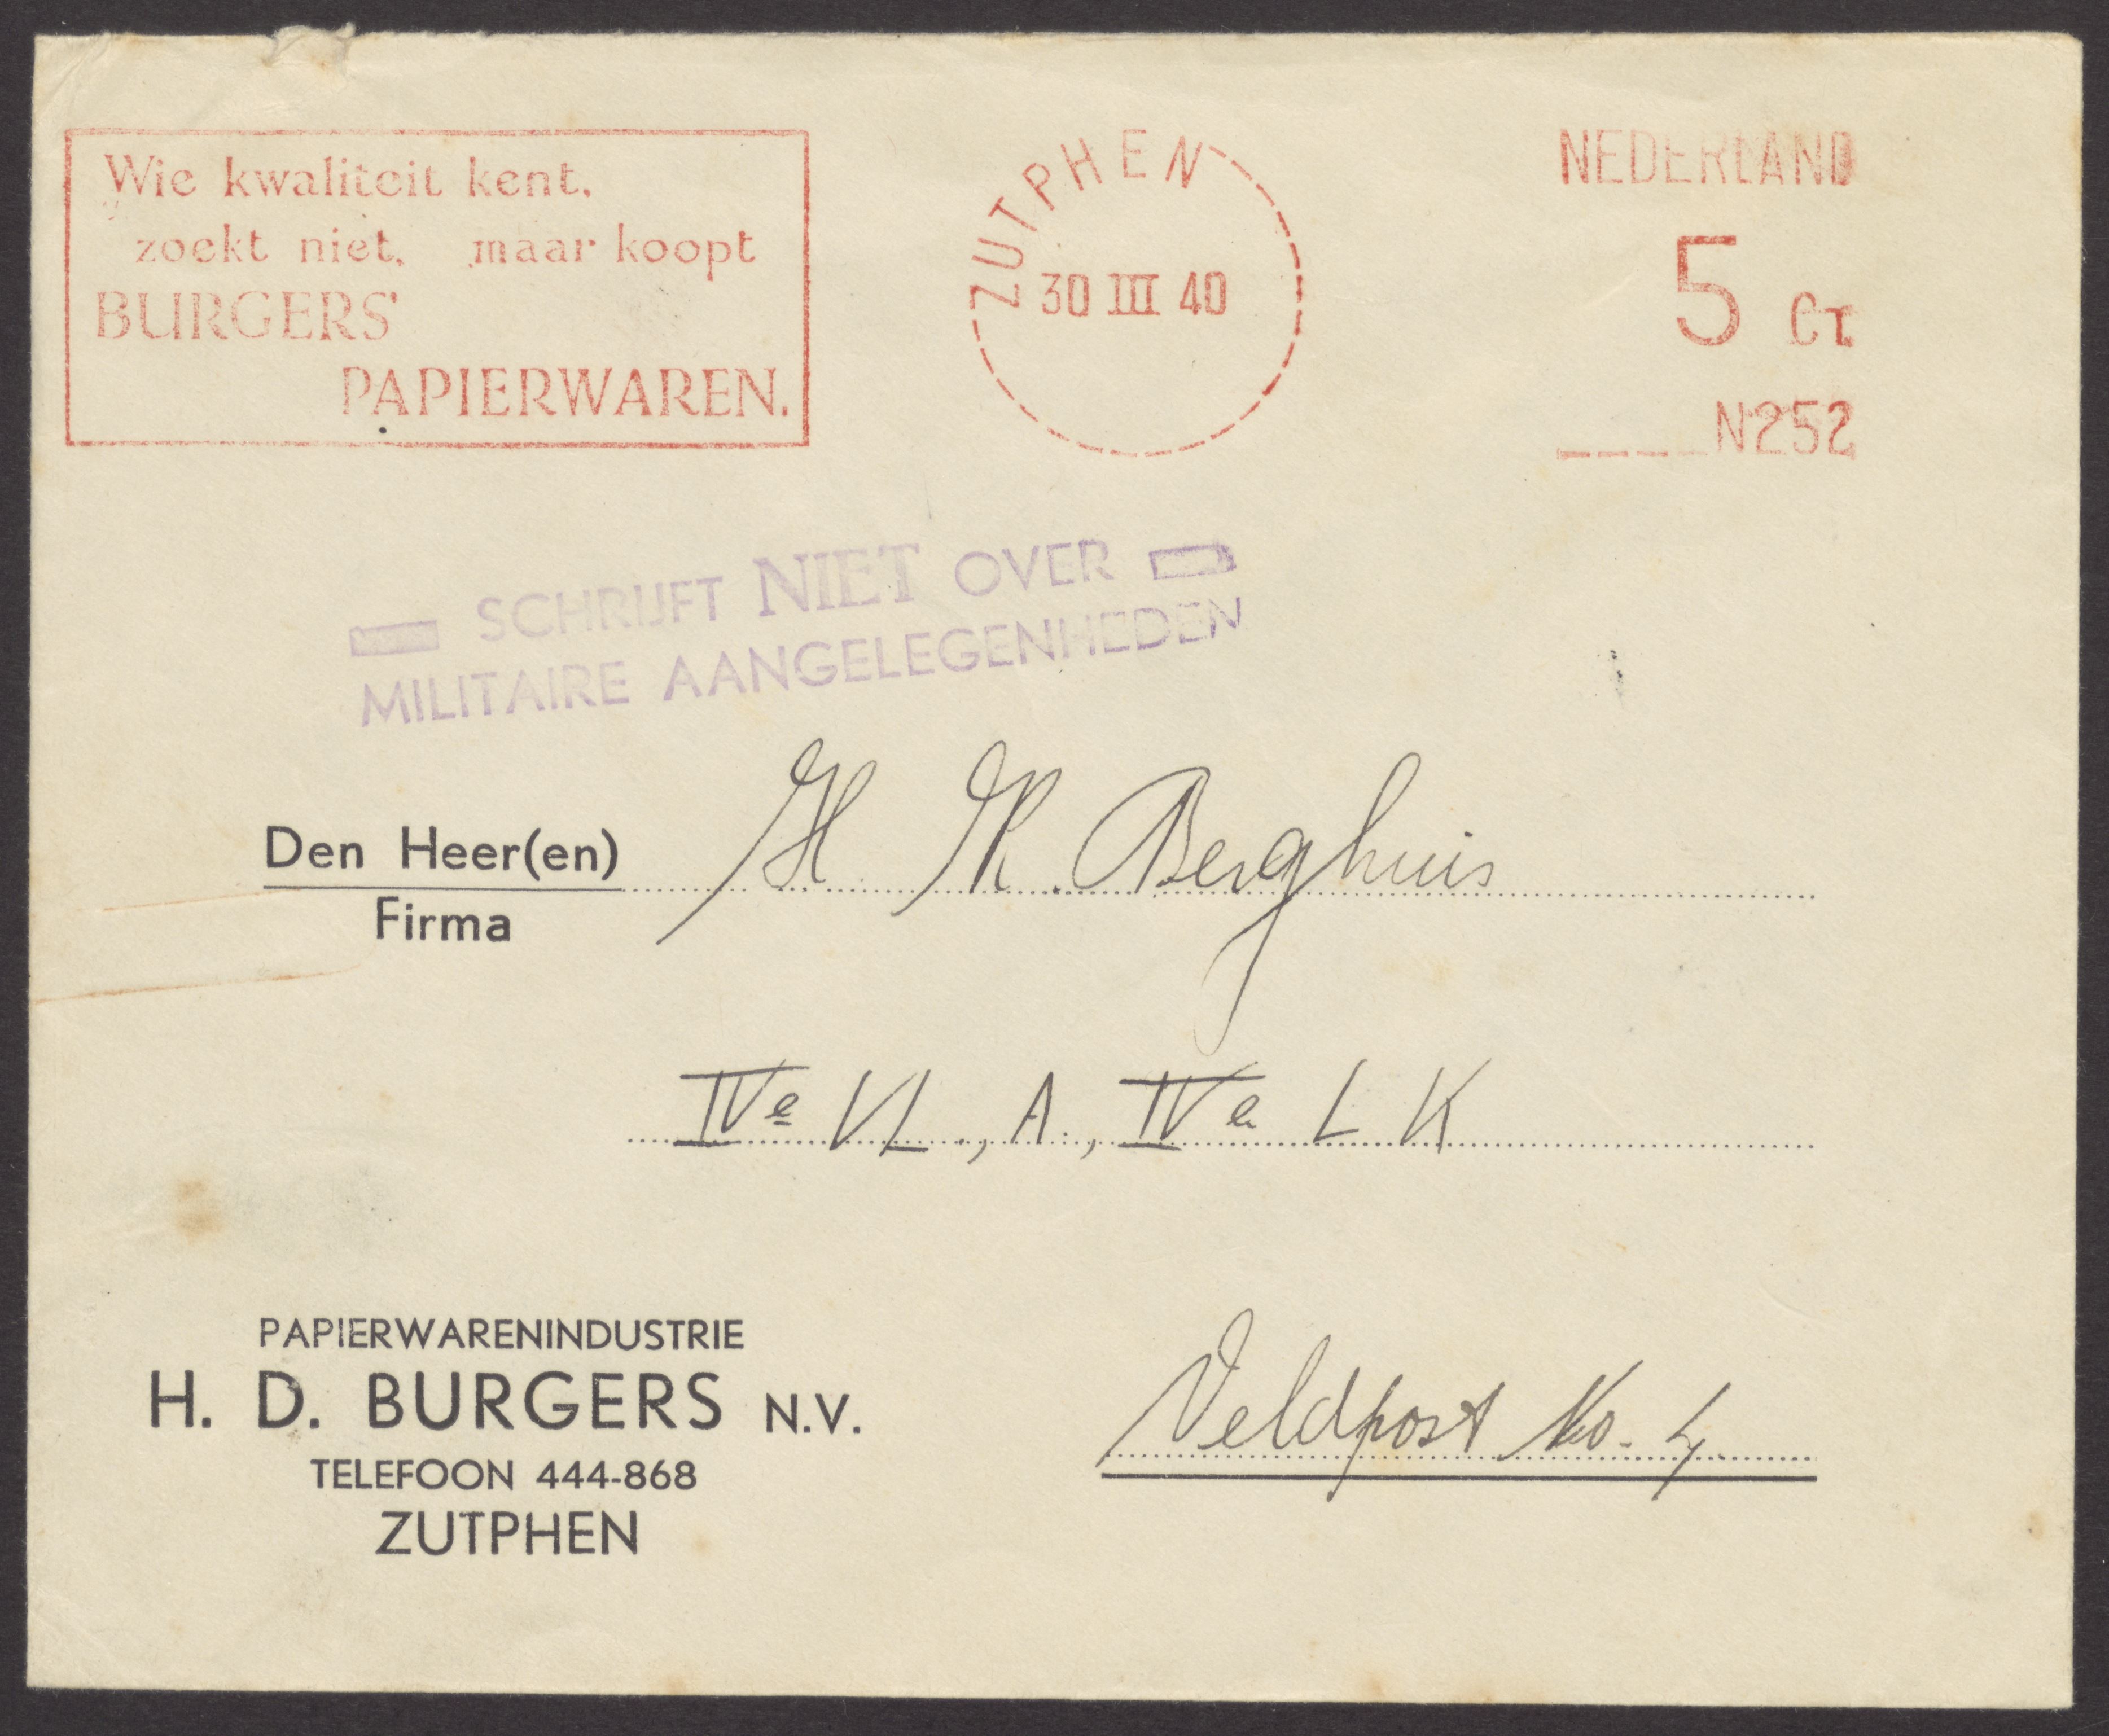 Wie kwaliteit kent,
zoekt niet, maar koopt
BURGERS'
PAPIERWAREN.
ZUTPHEN
30 III 40
NEDERLAND
5 CT.
N252
SCHRIJFT NIET OVER
MILITAIRE AANGELEGENHEDEN
Den Heer(en) H. Berghuis
Firma
IVe VL., A., IVe L K
PAPIERWARENINDUSTRIE
H. D. BURGERS N.V.
TELEFOON 444-868
ZUTPHEN
Veldpost No. 4